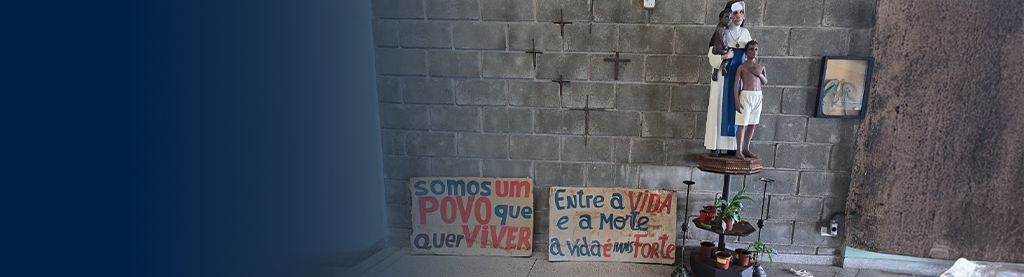 somos um
POVO que
quer VIVER
Entre a VIDA
e a Morte
a vida é mais Forte